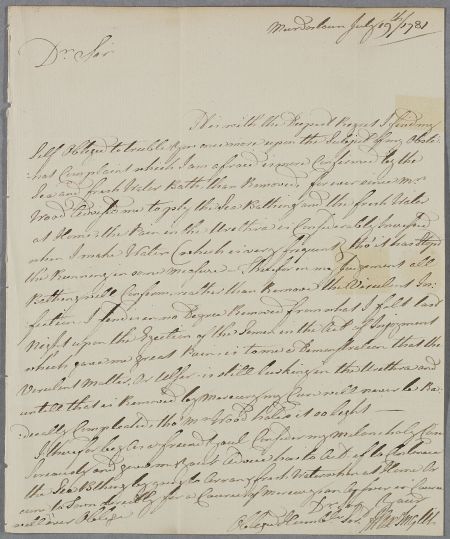 Murdostoun July 19th/1781
Dr Sir
It is with the Deepest Regret I find my
Self Obliged to trouble you once more upon the Subject of my Obsti-
nat Complaint which I am afraid is more Confirmed by the
Sea and fresh Water Bath than Removed, for ever since Mr
Wood Advised me to ply the Sea Bathing and the fresh Water
at Home the Pain in the Urethra is Considerably Increased
when I make Water (which is very frequent) tho' it has Stopd
the Running in some Measure — Therefor in my Judgement all
Bathing will Confirm rather than Remove the Virulent In-
fection I tender in no Degree Removed from what I felt last
Night upon the Ejection of the Semen in the Act of Enjoyment
which gave me great Pain, is to me a Demonstration that the
Virulent Matter or Ulser is still Lurking in the Urethra and
untill that is Removed by Mercury my Cure will never be Ra-
decally Compleated, tho Mr Wood holds it so light —
I therefor beg as a friend you'l Consider my Melancholy Case
Seriously and give me your Advice how to Act if to Continue
the Sea Bathing by going to Arran, fresh Water when at Home Or
come to Town directly for a Course of Mercury an Answer in Course
will ever Oblige
Dr Sir Your
Oblig'd Humble Ser.